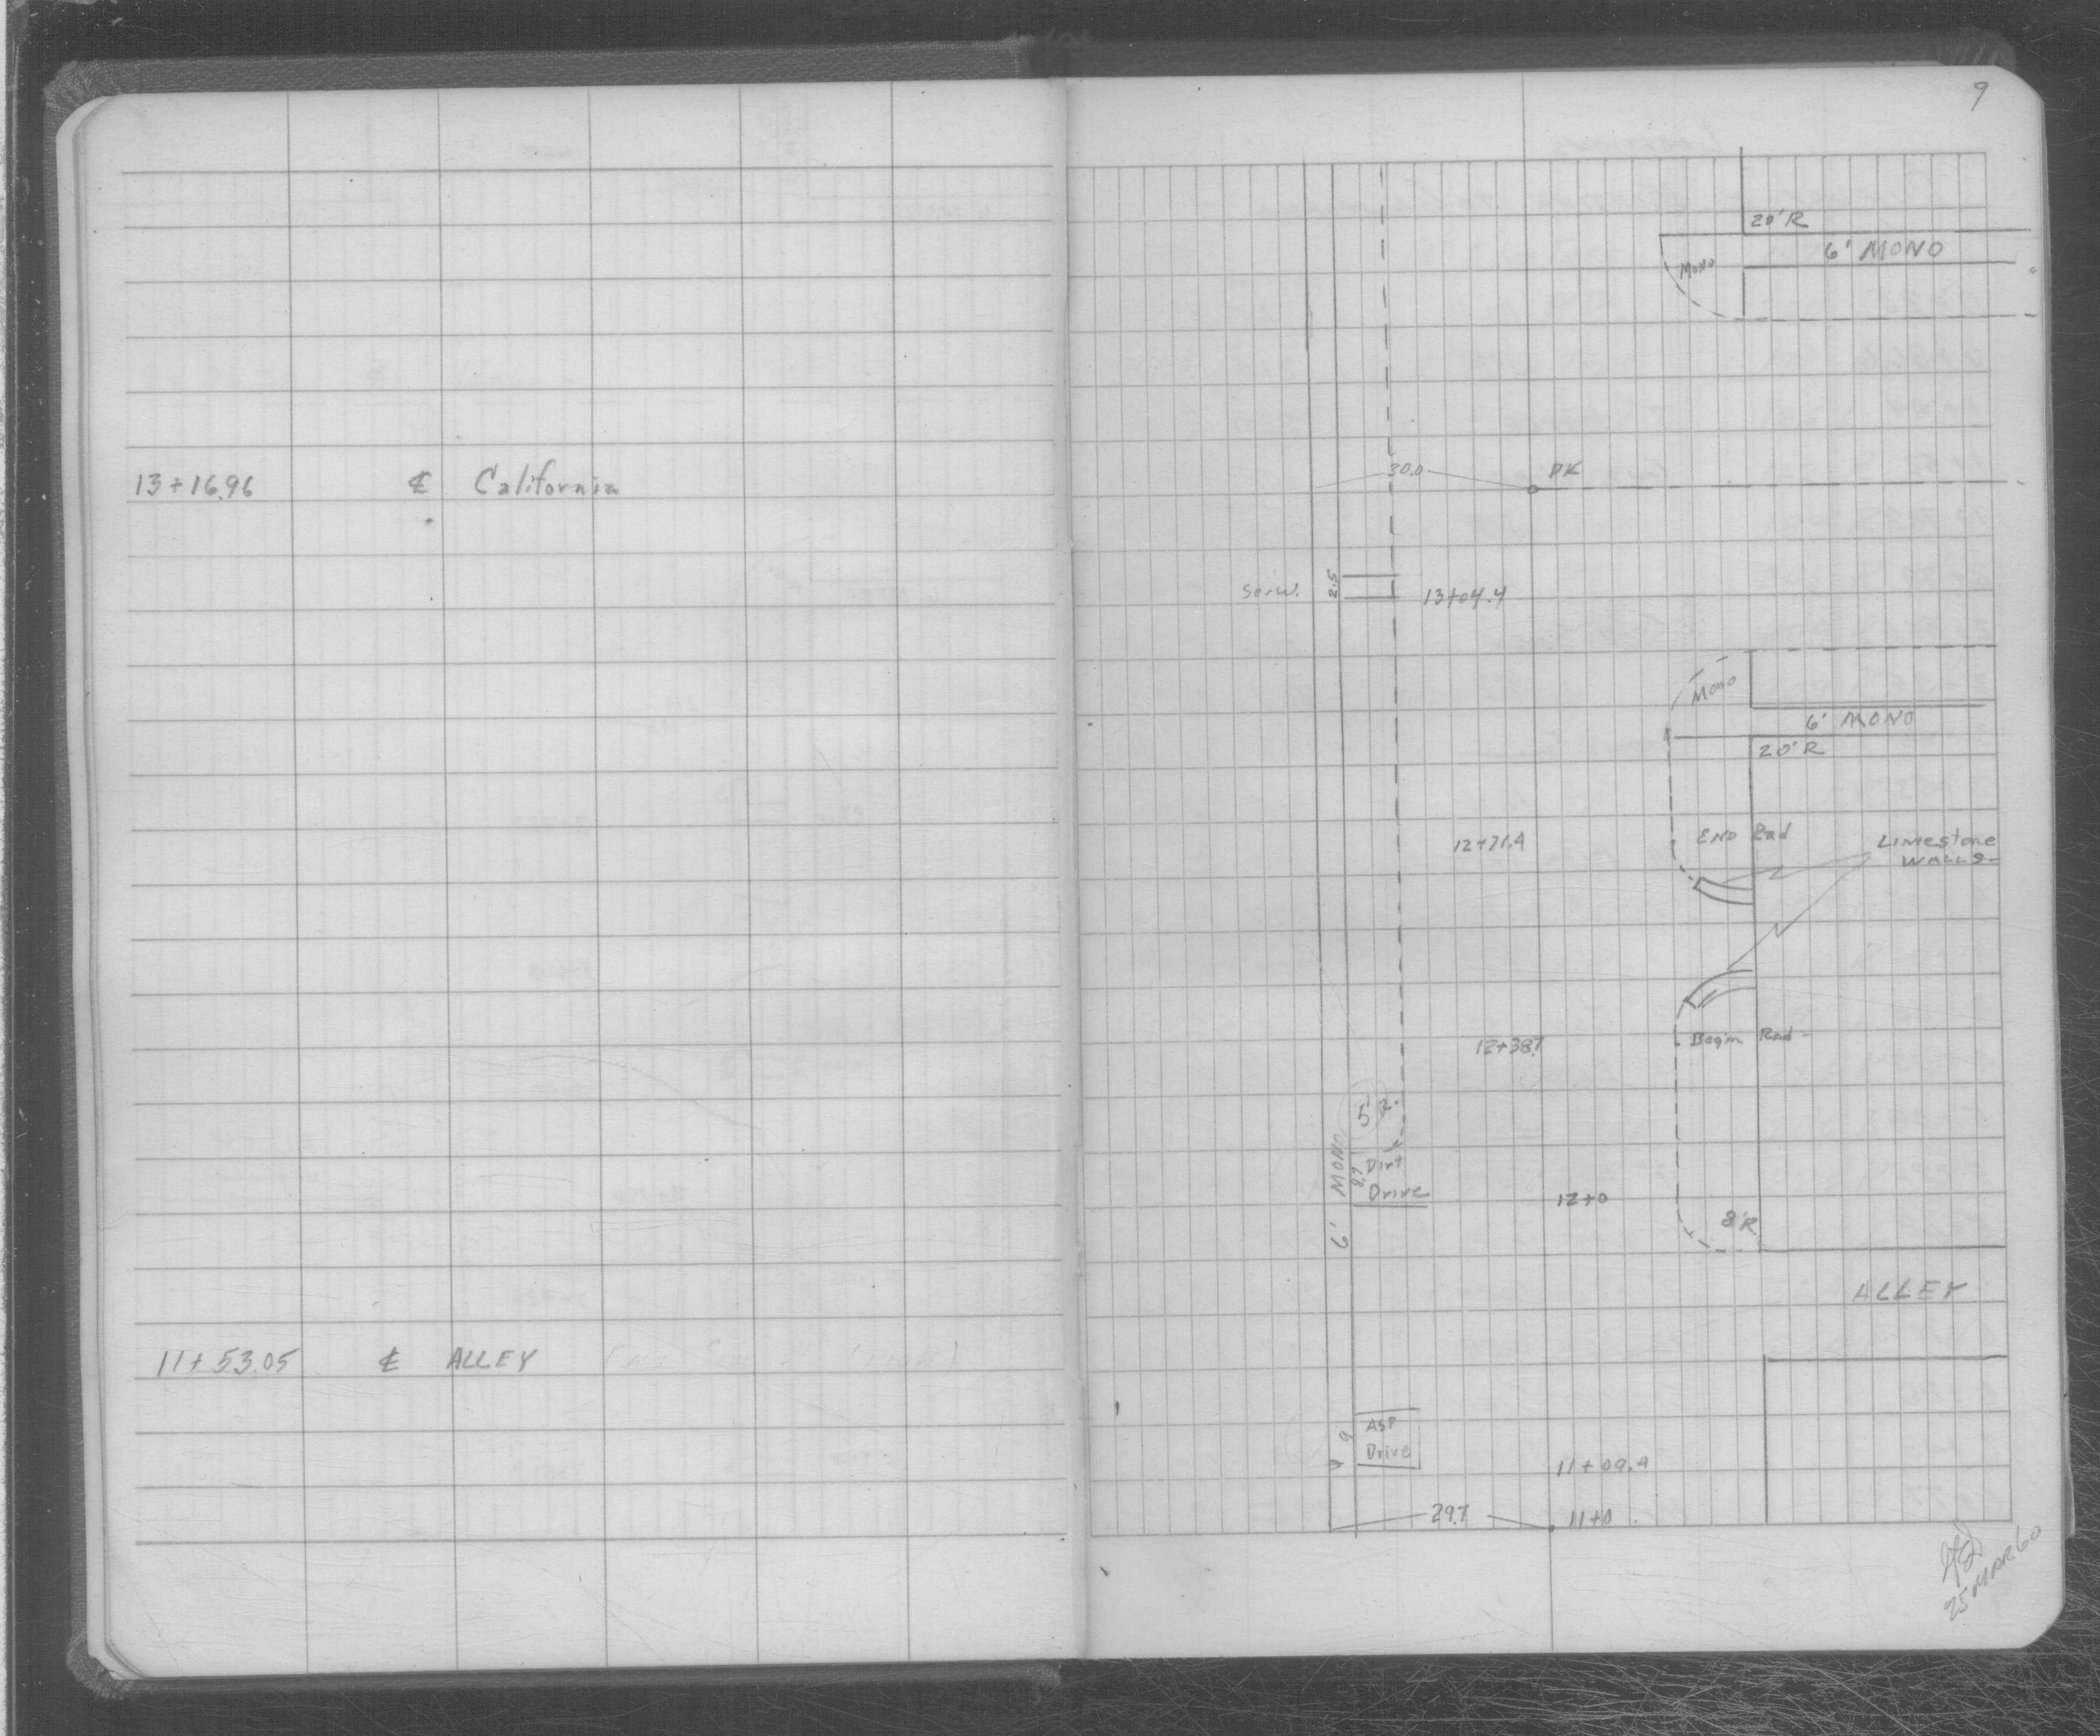 13+16.96 ℄ California
11+53.05 ℄ ALLEY
9
20'R
6' MONO
MONO
30.0
PK
Serw.
2.5
13+04.4
Mono
6' MONO
20'R
12+71.4
END Rad
Limestone
WALLS
12+38.7
Begin Rad
5' R.
6' MONO
Dirt
Drive
12+0
8'R
ALLEY
ASP
Drive
9'
11+09.4
29.7
11+0
25 MAR 60